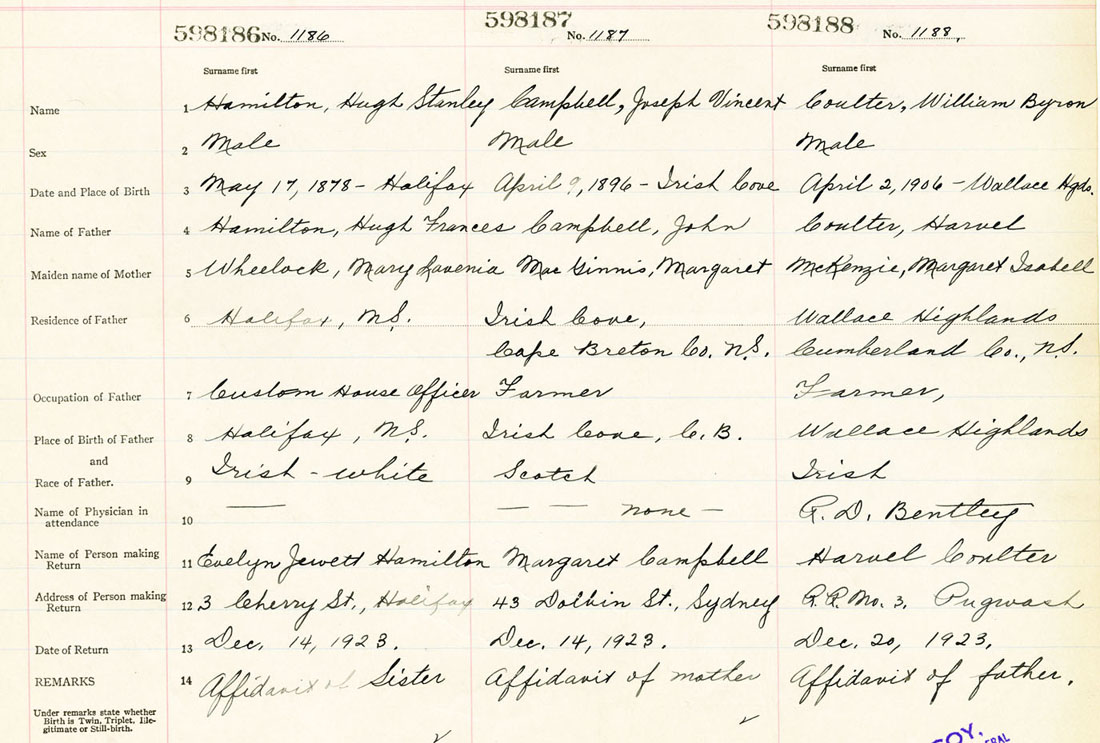 598186 No. 1186 598187 No. 1187 598188 No. 1188.
Surname first Surname first Surname first
Name 1 Hamilton, Hugh Stanley Campbell, Joseph Vincent Coulter, William Byron
Sex 2 Male Male Male
Date and Place of Birth 3 May 17, 1878 - Halifax April 9, 1896 - Irish Cove April 2, 1906 - Wallace Hglds.
Name of Father 4 Hamilton, Hugh Frances Campbell, John Coulter, Harvel
Maiden name of Mother 5 Wheelock, Mary Lavenia Mac Ginnis, Margaret McKenzie, Margaret Isabell
Residence of Father 6 Halifax, N.S. Irish Cove, Wallace Highlands
Cape Breton Co. N.S. Cumberland Co., N.S.
Occupation of Father 7 Custom House Officer Farmer Farmer,
Place of Birth of Father 8 Halifax, N.S. Irish Cove, C.B. Wallace Highlands
and
Race of Father. 9 Irish - white Scotch Irish
Name of Physician in
attendance 10 — — — none — R. D. Bentley
Name of Person making
Return 11 Evelyn Jewett Hamilton Margaret Campbell Harvel Coulter
Address of Person making
Return 12 3 Cherry St., Halifax 43 Dolbin St., Sydney R.R. No. 3. Pugwash
Date of Return 13 Dec. 14, 1923. Dec. 14, 1923. Dec. 20, 1923.
REMARKS 14 Affidavit of Sister Affidavit of mother Affidavit of father.
Under remarks state whether
Birth is Twin, Triplet, Ille-
gitimate or Still-birth.